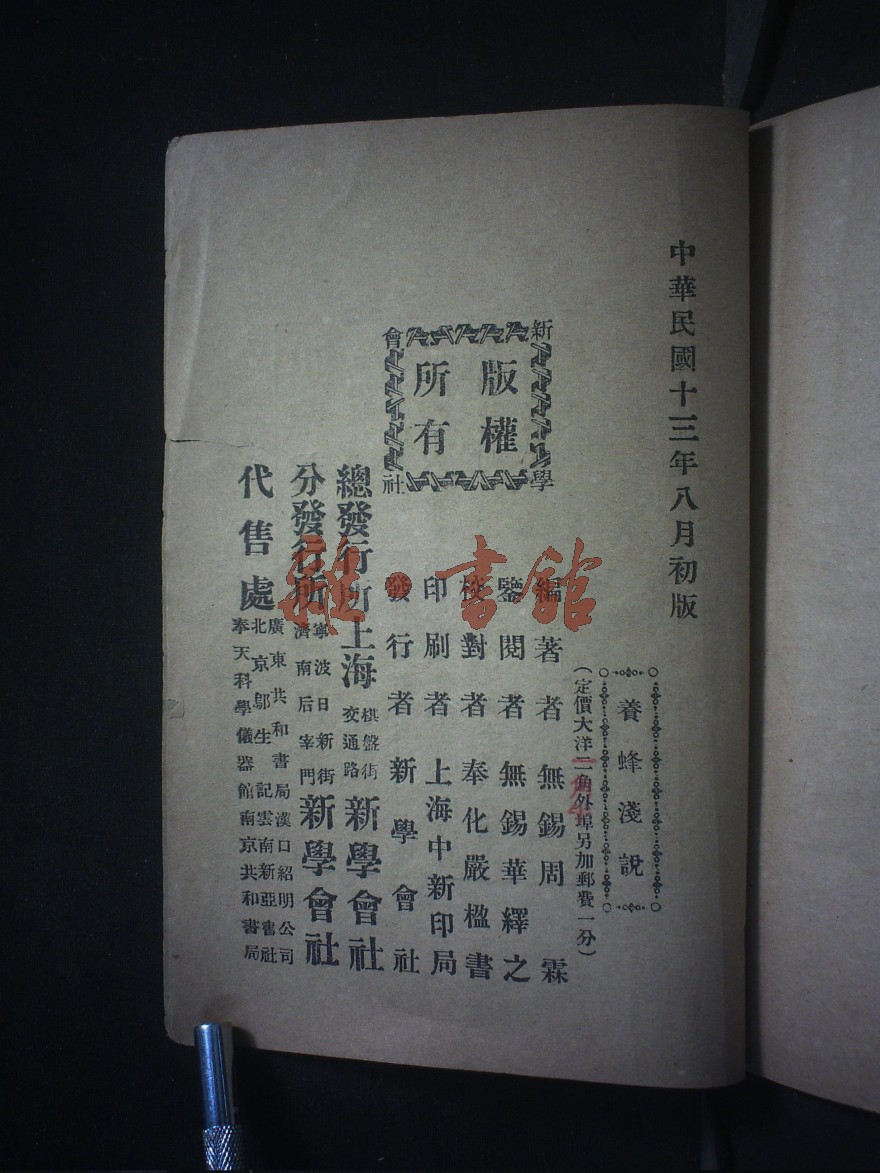 中華民國十三年八月初版
養蜂淺說
(定價大洋二角外埠另加郵費一分)
新學會社
版權
所有
編著者無錫周霖
鑒閱者無錫華繹之
校對者奉化嚴楹書
印刷者上海中新印局
發行者新學會社
總發行所上海棋盤街交通路新學會社
分發行所寧波日新街濟南后宰門新學會社
代售處
廣東共和書局漢口紹明公司
北京鄔生記雲南新亞書社
奉天科學儀器館南京共和書局
雜·書館